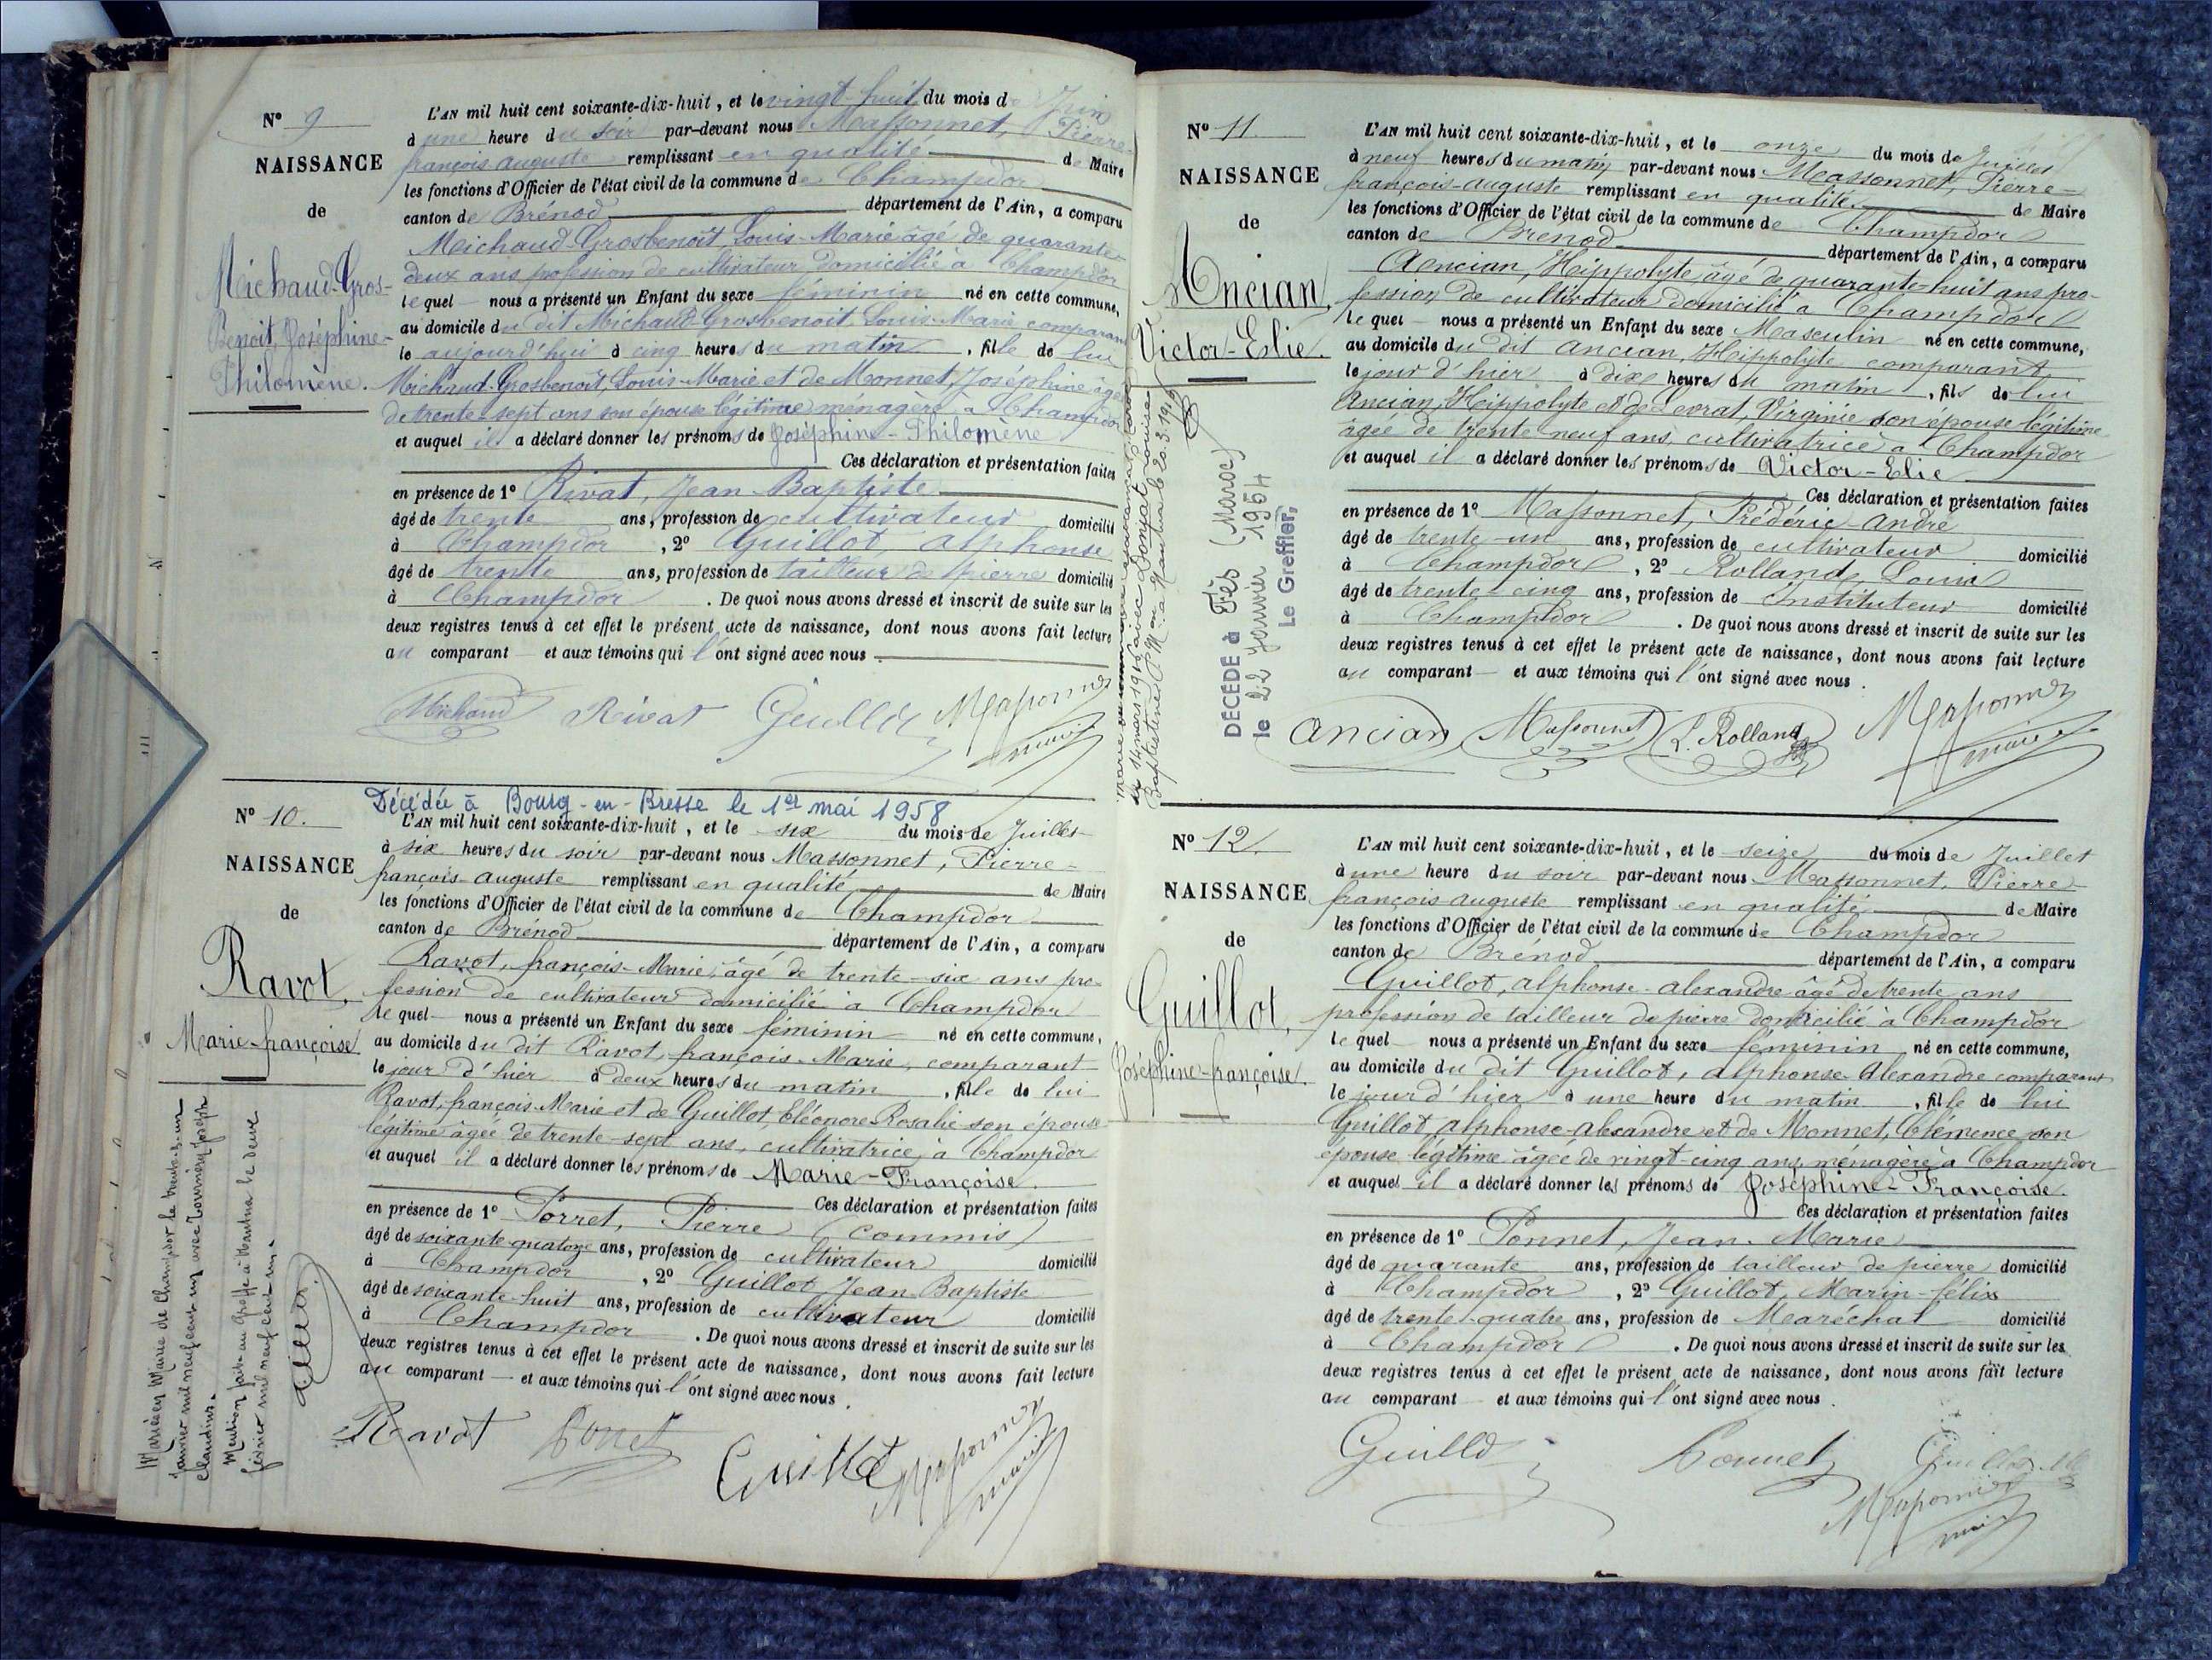 N° 9
NAISSANCE
de
Michaud-Gros-
Benoit, Joséphine-
Philomène.
L'AN mil huit cent soixante-dix-huit, et le vingt huit du mois de Juin
à une heure du soir par-devant nous Massonnet, Pierre-
françois auguste remplissant en qualité de Maire
les fonctions d'Officier de l'état civil de la commune de Champdor
canton de Brénod département de l'Ain, a comparu
Michaud-Grosbenoît, Louis-Marie âgé de quarante-
deux ans profession de cultivateur domicilié à Champdor
lequel nous a présenté un Enfant du sexe féminin né en cette commune,
au domicile du dit Michaud-Grosbenoit, Louis-Marie comparant
le aujourd'hui à cinq heures du matin, fille de lui
Michaud-Grosbenoît, Louis-Marie et de Monnet, Joséphine âgée
de trente-sept ans son épouse légitime ménagère à Champdor
et auquel il a déclaré donner les prénoms de Joséphine-Philomène
Ces déclaration et présentation faites
en présence de 1° Rivat, Jean-Baptiste
âgé de trente ans, profession de cultivateur domicilié
à Champdor, 2° Guillot, alphonse
âgé de trente ans, profession de tailleur de pierre domicilié
à Champdor. De quoi nous avons dressé et inscrit de suite sur les
deux registres tenus à cet effet le présent acte de naissance, dont nous avons fait lecture
au comparant et aux témoins qui l'ont signé avec nous.
Michaud Rivat Guillot Massonnet
maire
Décédée à Bourg-en-Bresse le 1er mai 1958
N° 10.
NAISSANCE
de
Ravot,
Marie-françoise
L'AN mil huit cent soixante-dix-huit, et le six du mois de Juillet
à six heures du soir par-devant nous Massonnet, Pierre-
françois-auguste remplissant en qualité de Maire
les fonctions d'Officier de l'état civil de la commune de Champdor
canton de Brénod département de l'Ain, a comparu
Ravot, françois-Marie, âgé de trente-six ans pro-
fession de cultivateur domicilié à Champdor
lequel nous a présenté un Enfant du sexe féminin né en cette commune,
au domicile du dit Ravot, françois-Marie, comparant
le jour d'hier à deux heures du matin, fille de lui
Ravot, françois-Marie et de Guillot, Eléonore-Rosalie son épouse
légitime âgée de trente-sept ans, cultivatrice, à Champdor
et auquel il a déclaré donner les prénoms de Marie-Françoise.
Ces déclaration et présentation faites
en présence de 1° Porret, Pierre (commis)
âgé de soixante-quatorze ans, profession de cultivateur domicilié
à Champdor, 2° Guillot Jean-Baptiste
âgé de soixante-huit ans, profession de cultivateur domicilié
à Champdor. De quoi nous avons dressé et inscrit de suite sur les
deux registres tenus à cet effet le présent acte de naissance, dont nous avons fait lecture
au comparant et aux témoins qui l'ont signé avec nous.
Ravot Guillot Massonnet
maire
Mariée à Mairie de Champdor le trente-et-un
janvier mil neuf cent un avec Tournier Joseph
Claudius.
Mention faite au Greffe à Nantua le deux
février mil neuf cent un.
N° 11.
NAISSANCE
de
Ancian,
Victor-Elie.
DÉCÉDÉ à Fès (Maroc)
le 22 janvier 1954
Le Greffier,
L'AN mil huit cent soixante-dix-huit, et le onze du mois de Juillet
à neuf heures du matin par-devant nous Massonnet, Pierre-
françois-auguste remplissant en qualité de Maire
les fonctions d'Officier de l'état civil de la commune de Champdor
canton de Brénod département de l'Ain, a comparu
Ancian, Hippolyte âgé de quarante-huit ans pro-
fession de cultivateur domicilié à Champdor
lequel nous a présenté un Enfant du sexe Masculin né en cette commune,
au domicile du dit ancian, Hippolyte comparant
le jour d'hier à dix heures du matin, fils de lui
Ancian, Hippolyte et de Levrat, Virginie son épouse légitime
âgée de trente-neuf ans, cultivatrice à Champdor
et auquel il a déclaré donner les prénoms de Victor-Elie
Ces déclaration et présentation faites
en présence de 1° Massonnet, Frédéric-andré
âgé de trente-un ans, profession de cultivateur domicilié
à Champdor, 2° Rolland, Louis
âgé de trente-cinq ans, profession de Instituteur domicilié
à Champdor. De quoi nous avons dressé et inscrit de suite sur les
deux registres tenus à cet effet le présent acte de naissance, dont nous avons fait lecture
au comparant et aux témoins qui l'ont signé avec nous.
ancian Massonnet L. Rolland Massonnet
maire
N° 12.
NAISSANCE
de
Guillot,
Joséphine-françoise.
L'AN mil huit cent soixante-dix-huit, et le seize du mois de Juillet
à une heure du soir par-devant nous Massonnet, Pierre-
françois auguste remplissant en qualité de Maire
les fonctions d'Officier de l'état civil de la commune de Champdor
canton de Brénod département de l'Ain, a comparu
Guillot, alphonse-alexandre âgé de trente ans
profession de tailleur de pierre domicilié à Champdor
lequel nous a présenté un Enfant du sexe féminin né en cette commune,
au domicile du dit Guillot, alphonse-Alexandre comparant
le jour d'hier à une heure du matin, fille de lui
Guillot alphonse-alexandre et de Monnet, Clémence son
épouse légitime âgée de vingt-cinq ans, ménagère à Champdor
et auquel il a déclaré donner les prénoms de Joséphine-Françoise.
Ces déclaration et présentation faites
en présence de 1° Ponnet, Jean-Marie
âgé de quarante ans, profession de tailleur de pierre domicilié
à Champdor, 2° Guillot, Marin-félix
âgé de trente-quatre ans, profession de Maréchal domicilié
à Champdor. De quoi nous avons dressé et inscrit de suite sur les
deux registres tenus à cet effet le présent acte de naissance, dont nous avons fait lecture
au comparant et aux témoins qui l'ont signé avec nous.
Guillot Massonnet
maire